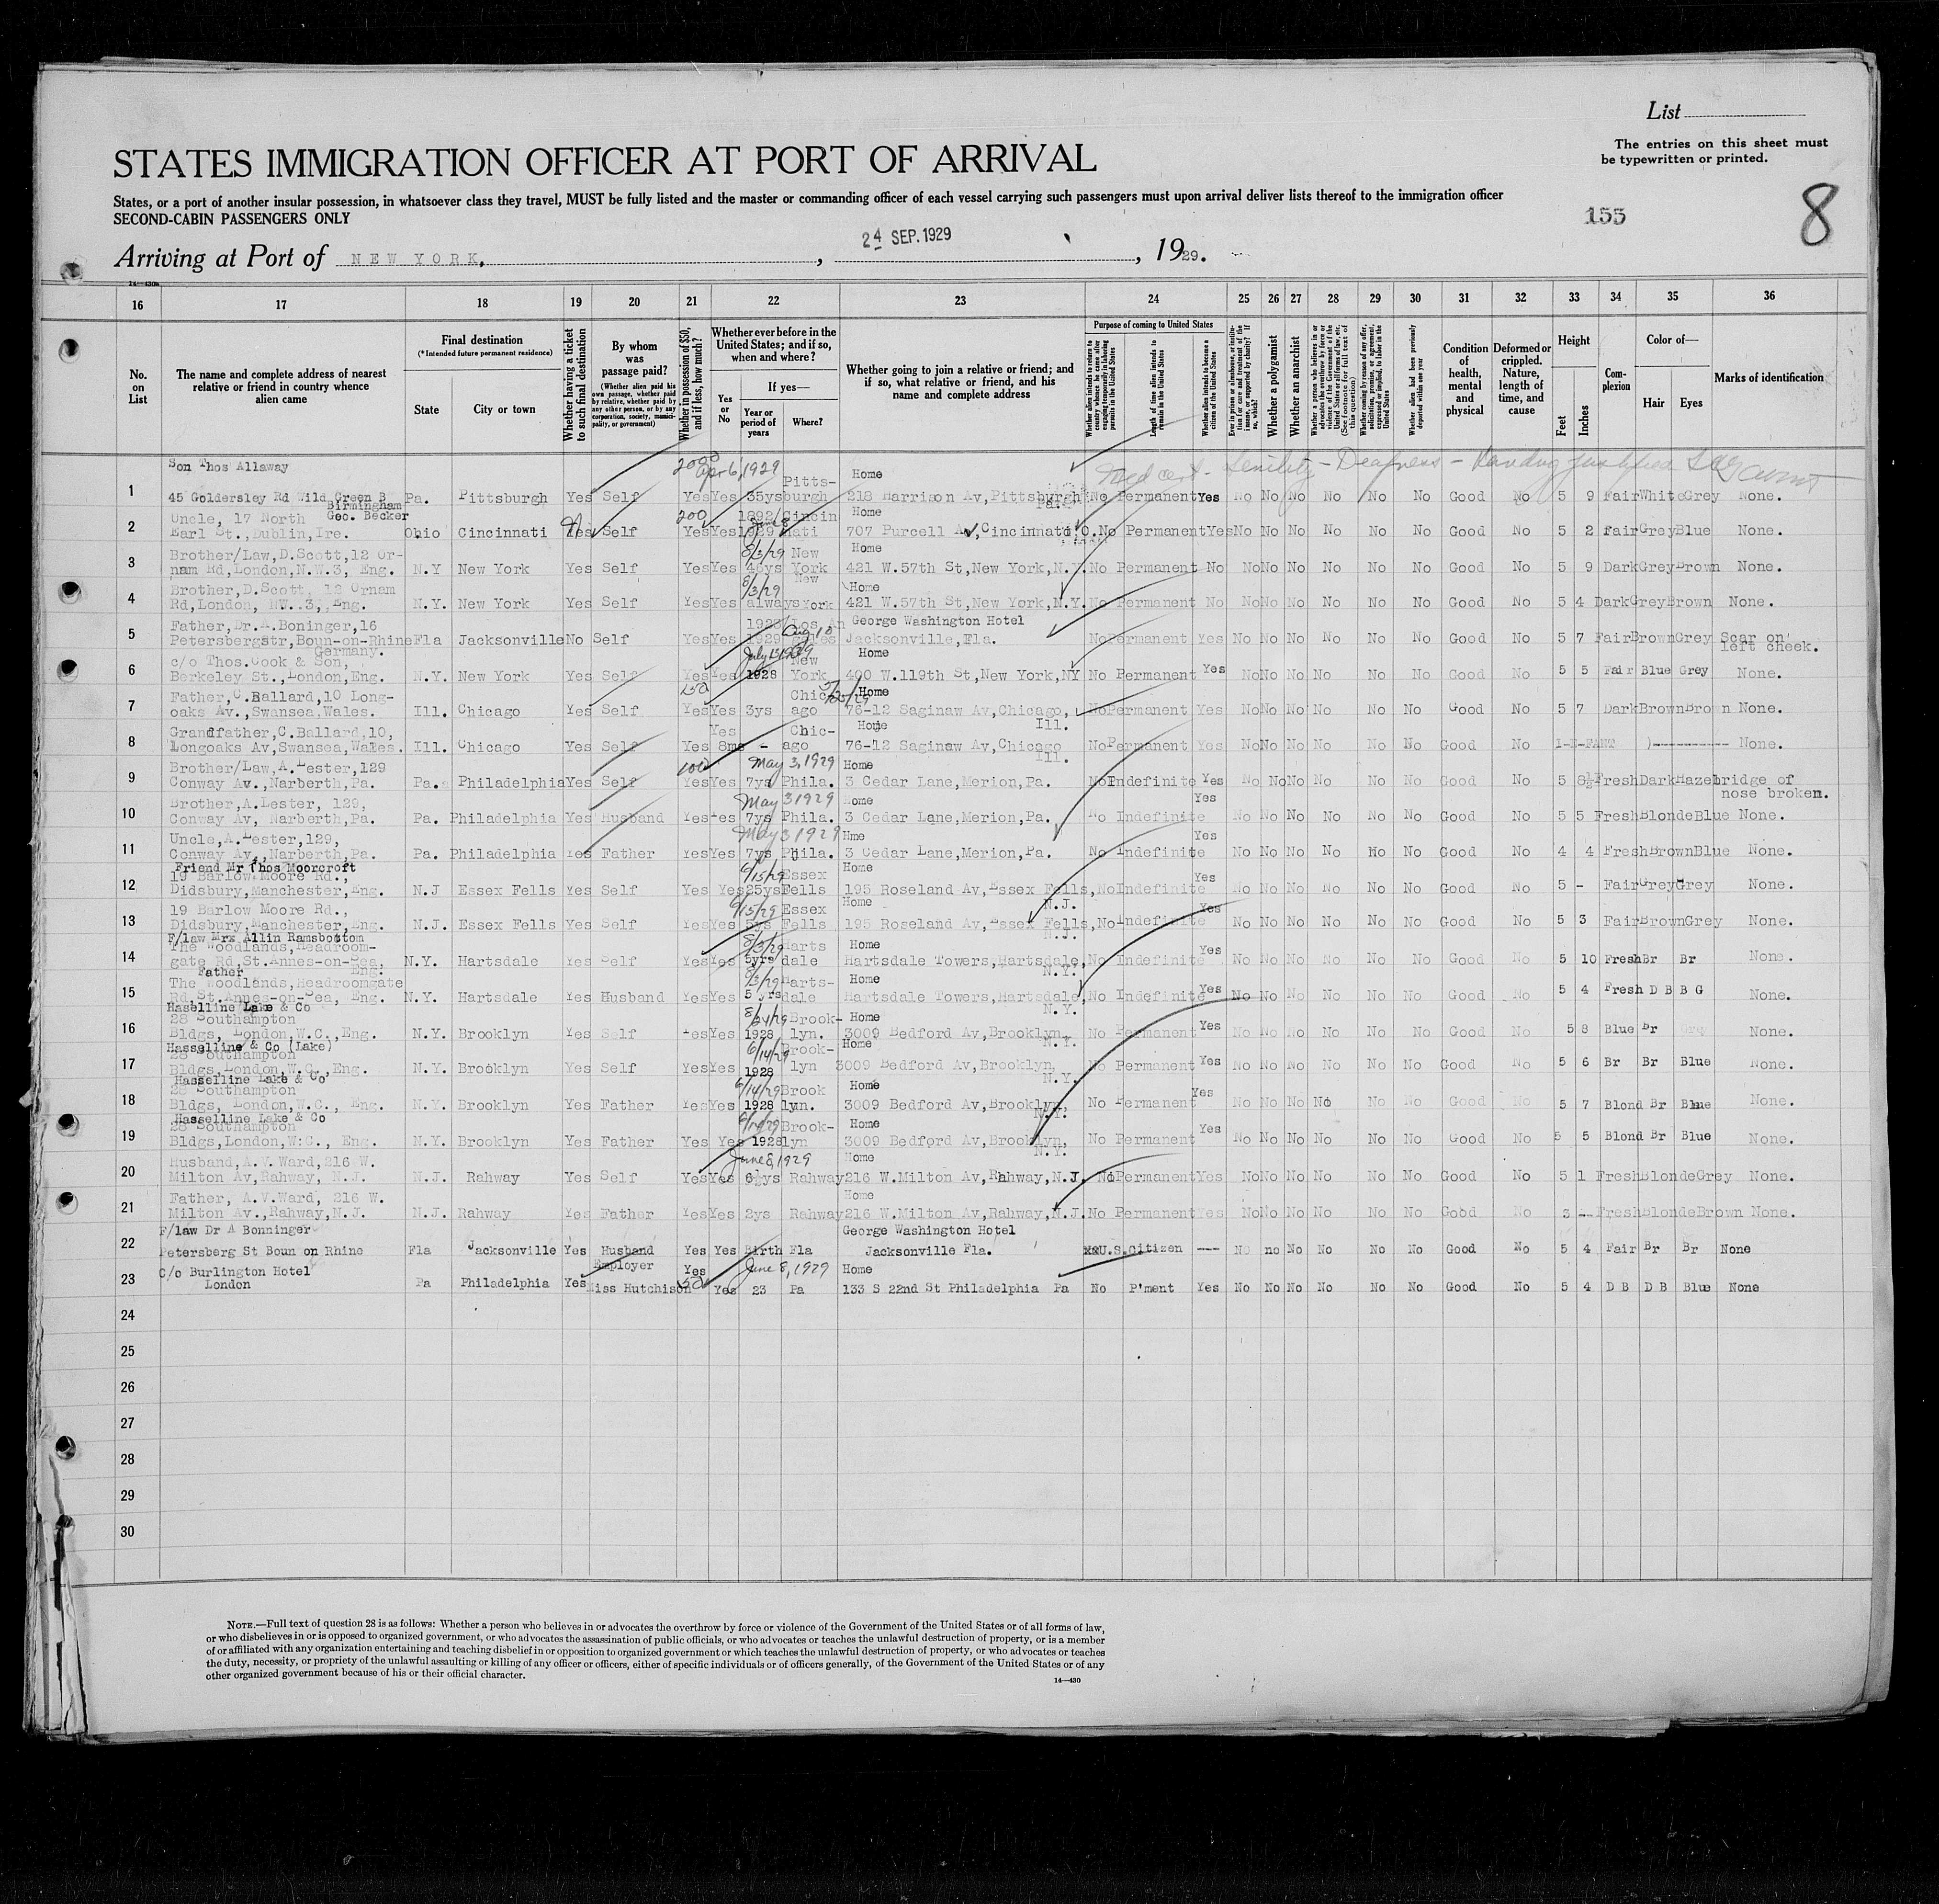 List
The entries on this sheet must
be typewritten or printed.
STATES IMMIGRATION OFFICER AT PORT OF ARRIVAL
States, or a port of another insular possession, in whatsoever class they travel, MUST be fully listed and the master or commanding officer of each vessel carrying such passengers must upon arrival deliver lists thereof to the immigration officer
SECOND-CABIN PASSENGERS ONLY
155
8
Arriving at Port of NEW YORK, 24 SEP. 1929, 1929.
16 17 18 19 20 21 22 23 24 25 26 27 28 29 30 31 32 33 34 35 36
No. on List
The name and complete address of nearest relative or friend in country whence alien came
Final destination
(*Intended future permanent residence)
State
City or town
Whether having a ticket to such final destination
By whom was passage paid?
(Whether alien paid his own passage, whether paid by relative, whether paid by any other person, or by any corporation, society, municipality, or government)
Whether in possession of $50, and if less, how much?
Whether ever before in the United States; and if so, when and where?
Yes or No
If yes—
Year or period of years
Where?
Whether going to join a relative or friend; and if so, what relative or friend, and his name and complete address
Purpose of coming to United States
Whether alien intends to return to country whence he came after engaging temporarily in laboring pursuits in the United States
Length of time alien intends to remain in the United States
Whether alien intends to become a citizen of the United States
Whether a polygamist
Whether an anarchist
Whether alien had been previously deported within one year
Condition of health, mental and physical
Deformed or crippled. Nature, length of time, and cause
Height
Feet
Inches
Complexion
Color of—
Hair
Eyes
Marks of identification
Son Thos Allaway 2000 Apr 6, 1929 Home
1 45 Goldersley Rd Wild Green B Birmingham Pa. Pittsburgh Yes Self Yes Yes 35ys Pittsburgh 218 Harrison Av, Pittsburgh Pa. No Permanent Yes No No No No No No Good No 5 9 Fair White Grey None.
Med cert - Senility - Deafness
2 Uncle, 17 North Geo. Becker Earl St., Dublin, Ire. Ohio Cincinnati Yes Self 200 Yes Yes 1892/1929 Cincinnati Home 707 Purcell Av, Cincinnati, O. No Permanent Yes No No No No No No Good No 5 2 Fair Grey Blue None.
3 Brother/Law, D. Scott, 12 Ornam Rd, London, N.W.3, Eng. N.Y New York Yes Self Yes Yes 8/3/29 46ys New York Home 421 W.57th St, New York, N.Y. No Permanent No No No No No No No Good No 5 9 Dark Grey Brown None.
4 Brother, D. Scott, 12 Ornam Rd, London, NW.3, Eng. N.Y. New York Yes Self Yes Yes 8/3/29 always New York Home 421 W.57th St, New York, N.Y. No Permanent No No No No No No No Good No 5 4 Dark Grey Brown None.
5 Father, Dr. A. Boninger, 16 Petersbergstr, Boun-on-Rhine Germany. Fla Jacksonville No Self Yes Yes 1928/1929 Los Angeles Aug 10 George Washington Hotel Jacksonville, Fla. No Permanent Yes No No No No No No Good No 5 7 Fair Brown Grey Scar on left cheek.
6 c/o Thos. Cook & Son, Berkeley St., London, Eng. N.Y. New York Yes Self Yes Yes July 13 1929 1928 New York Home 400 W.119th St, New York, NY No Permanent Yes No No No No No No Good No 5 5 Fair Blue Grey None.
7 Father, C. Ballard, 10 Longoaks Av., Swansea, Wales. Ill. Chicago Yes Self 150 Yes Yes 3ys Chicago Home 76-12 Saginaw Av, Chicago, Ill. No Permanent Yes No No No No No No Good No 5 7 Dark Brown Brown None.
8 Grandfather, C. Ballard, 10, Longoaks Av, Swansea, Wales. Ill. Chicago Yes Self Yes Yes 8ms - Chicago Home 76-12 Saginaw Av, Chicago Ill. No Permanent Yes No No No No No No Good No I-N-FANT )---------- None.
9 Brother/Law, A. Lester, 129 Conway Av., Narberth, Pa. Pa. Philadelphia Yes Self 100 Yes Yes May 3, 1929 7ys Phila. Home 3 Cedar Lane, Merion, Pa. No Indefinite Yes No No No No No No Good No 5 8½ Fresh Dark Hazel bridge of nose broken.
10 Brother, A. Lester, 129, Conway Av, Narberth, Pa. Pa. Philadelphia Yes Husband Yes Yes May 3 1929 7ys Phila. Home 3 Cedar Lane, Merion, Pa. No Indefinite Yes No No No No No No Good No 5 5 Fresh Blonde Blue None.
11 Uncle, A. Lester, 129, Conway Av., Narberth, Pa. Pa. Philadelphia Yes Father Yes Yes May 3 1929 7ys Phila. Hme 3 Cedar Lane, Merion, Pa. No Indefinite Yes No No No No No No Good No 4 4 Fresh Brown Blue None.
12 Friend Mr Thos Moorcroft 19 Barlow Moore Rd., Didsbury, Manchester, Eng. N.J Essex Fells Yes Self Yes Yes 6/15/29 25ys Essex Fells Home 195 Roseland Av, Essex Fells, N.J. No Indefinite Yes No No No No No No Good No 5 - Fair Grey Grey None.
13 19 Barlow Moore Rd., Didsbury, Manchester, Eng. N.J. Essex Fells Yes Self Yes Yes 6/15/29 5ys Essex Fells Home 195 Roseland Av, Essex Fells, N.J. No Indefinite Yes No No No No No No Good No 5 3 Fair Brown Grey None.
14 F/law Mrx Allin Ramsbottom The Woodlands, Headroomgate Rd, St. Annes-on-Sea, Eng. N.Y. Hartsdale Yes Self Yes Yes 8/3/29 5yrs Hartsdale Home Hartsdale Towers, Hartsdale, N.Y. No Indefinite Yes No No No No No No Good No 5 10 Fresh Br Br None.
15 Father The Woodlands, Headroomgate Rd, St. Annes-on-Sea, Eng. N.Y. Hartsdale Yes Husband Yes Yes 8/3/29 5 yrs Hartsdale Home Hartsdale Towers, Hartsdale, N.Y. No Indefinite Yes No No No No No No Good No 5 4 Fresh D B B G None.
16 Haselline Lake & Co 28 Southampton Bldgs, London, W.C., Eng. N.Y. Brooklyn Yes Self Yes Yes 8/24/29 1928 Brooklyn. Home 3009 Bedford Av, Brooklyn, N.Y. No Permanent Yes No No No No No No Good No 5 8 Blue Br None.
17 Hasselline & Co (Lake) 28 Southampton Bldgs, London, W.C., Eng. N.Y. Brooklyn Yes Self Yes Yes 6/14/29 1928 Brooklyn Home 3009 Bedford Av, Brooklyn, N.Y. No Permanent Yes No No No No No No Good No 5 6 Br Br Blue None.
18 Hasselline Lake & Co 28 Southampton Bldgs, London, W.C., Eng. N.Y. Brooklyn Yes Father Yes Yes 6/14/29 1928 Brooklyn. Home 3009 Bedford Av, Brooklyn, N.Y. No Permanent Yes No No No No No No Good No 5 7 Blond Br Blue None.
19 Hasselline Lake & Co 28 Southampton Bldgs, London, W.C., Eng. N.Y. Brooklyn Yes Father Yes Yes 6/14/29 1928 Brooklyn Home 3009 Bedford Av, Brooklyn, N.Y. No Permanent Yes No No No No No No Good No 5 5 Blond Br Blue None.
20 Husband, A.V. Ward, 216 W. Milton Av, Rahway, N.J. N.J. Rahway Yes Self Yes Yes June 8, 1929 6½ys Rahway Home 216 W. Milton Av, Rahway, N.J. No Permanent Yes No No No No No No Good No 5 1 Fresh Blonde Grey None.
21 Father, A.V. Ward, 216 W. Milton Av., Rahway, N.J. N.J. Rahway Yes Father Yes Yes 2ys Rahway Home 216 W. Milton Av, Rahway, N.J. No Permanent Yes No No No No No No Good No 3 -- Fresh Blonde Brown None.
22 F/law Dr A Bonninger Petersberg St Boun on Rhine Fla Jacksonville Yes Husband Yes Yes Birth Fla George Washington Hotel Jacksonville Fla. U.S. Citizen --- No no No No No No Good No 5 4 Fair Br Br None
23 C/o Burlington Hotel London Pa Philadelphia Yes Employer Miss Hutchison Yes 150 Yes June 8, 1929 23 Pa Home 133 S 22nd St Philadelphia Pa No P'ment Yes No No No No No No Good No 5 4 D B D B Blue None
24
25
26
27
28
29
30
NOTE.—Full text of question 28 is as follows: Whether a person who believes in or advocates the overthrow by force or violence of the Government of the United States or of all forms of law,
or who disbelieves in or is opposed to organized government, or who advocates the assassination of public officials, or who advocates or teaches the unlawful destruction of property, or is a member
of or affiliated with any organization entertaining and teaching disbelief in or opposition to organized government or which teaches the unlawful destruction of property, or who advocates or teaches
the duty, necessity, or propriety of the unlawful assaulting or killing of any officer or officers, either of specific individuals or of officers generally, of the Government of the United States or of any
other organized government because of his or their official character.
14—430